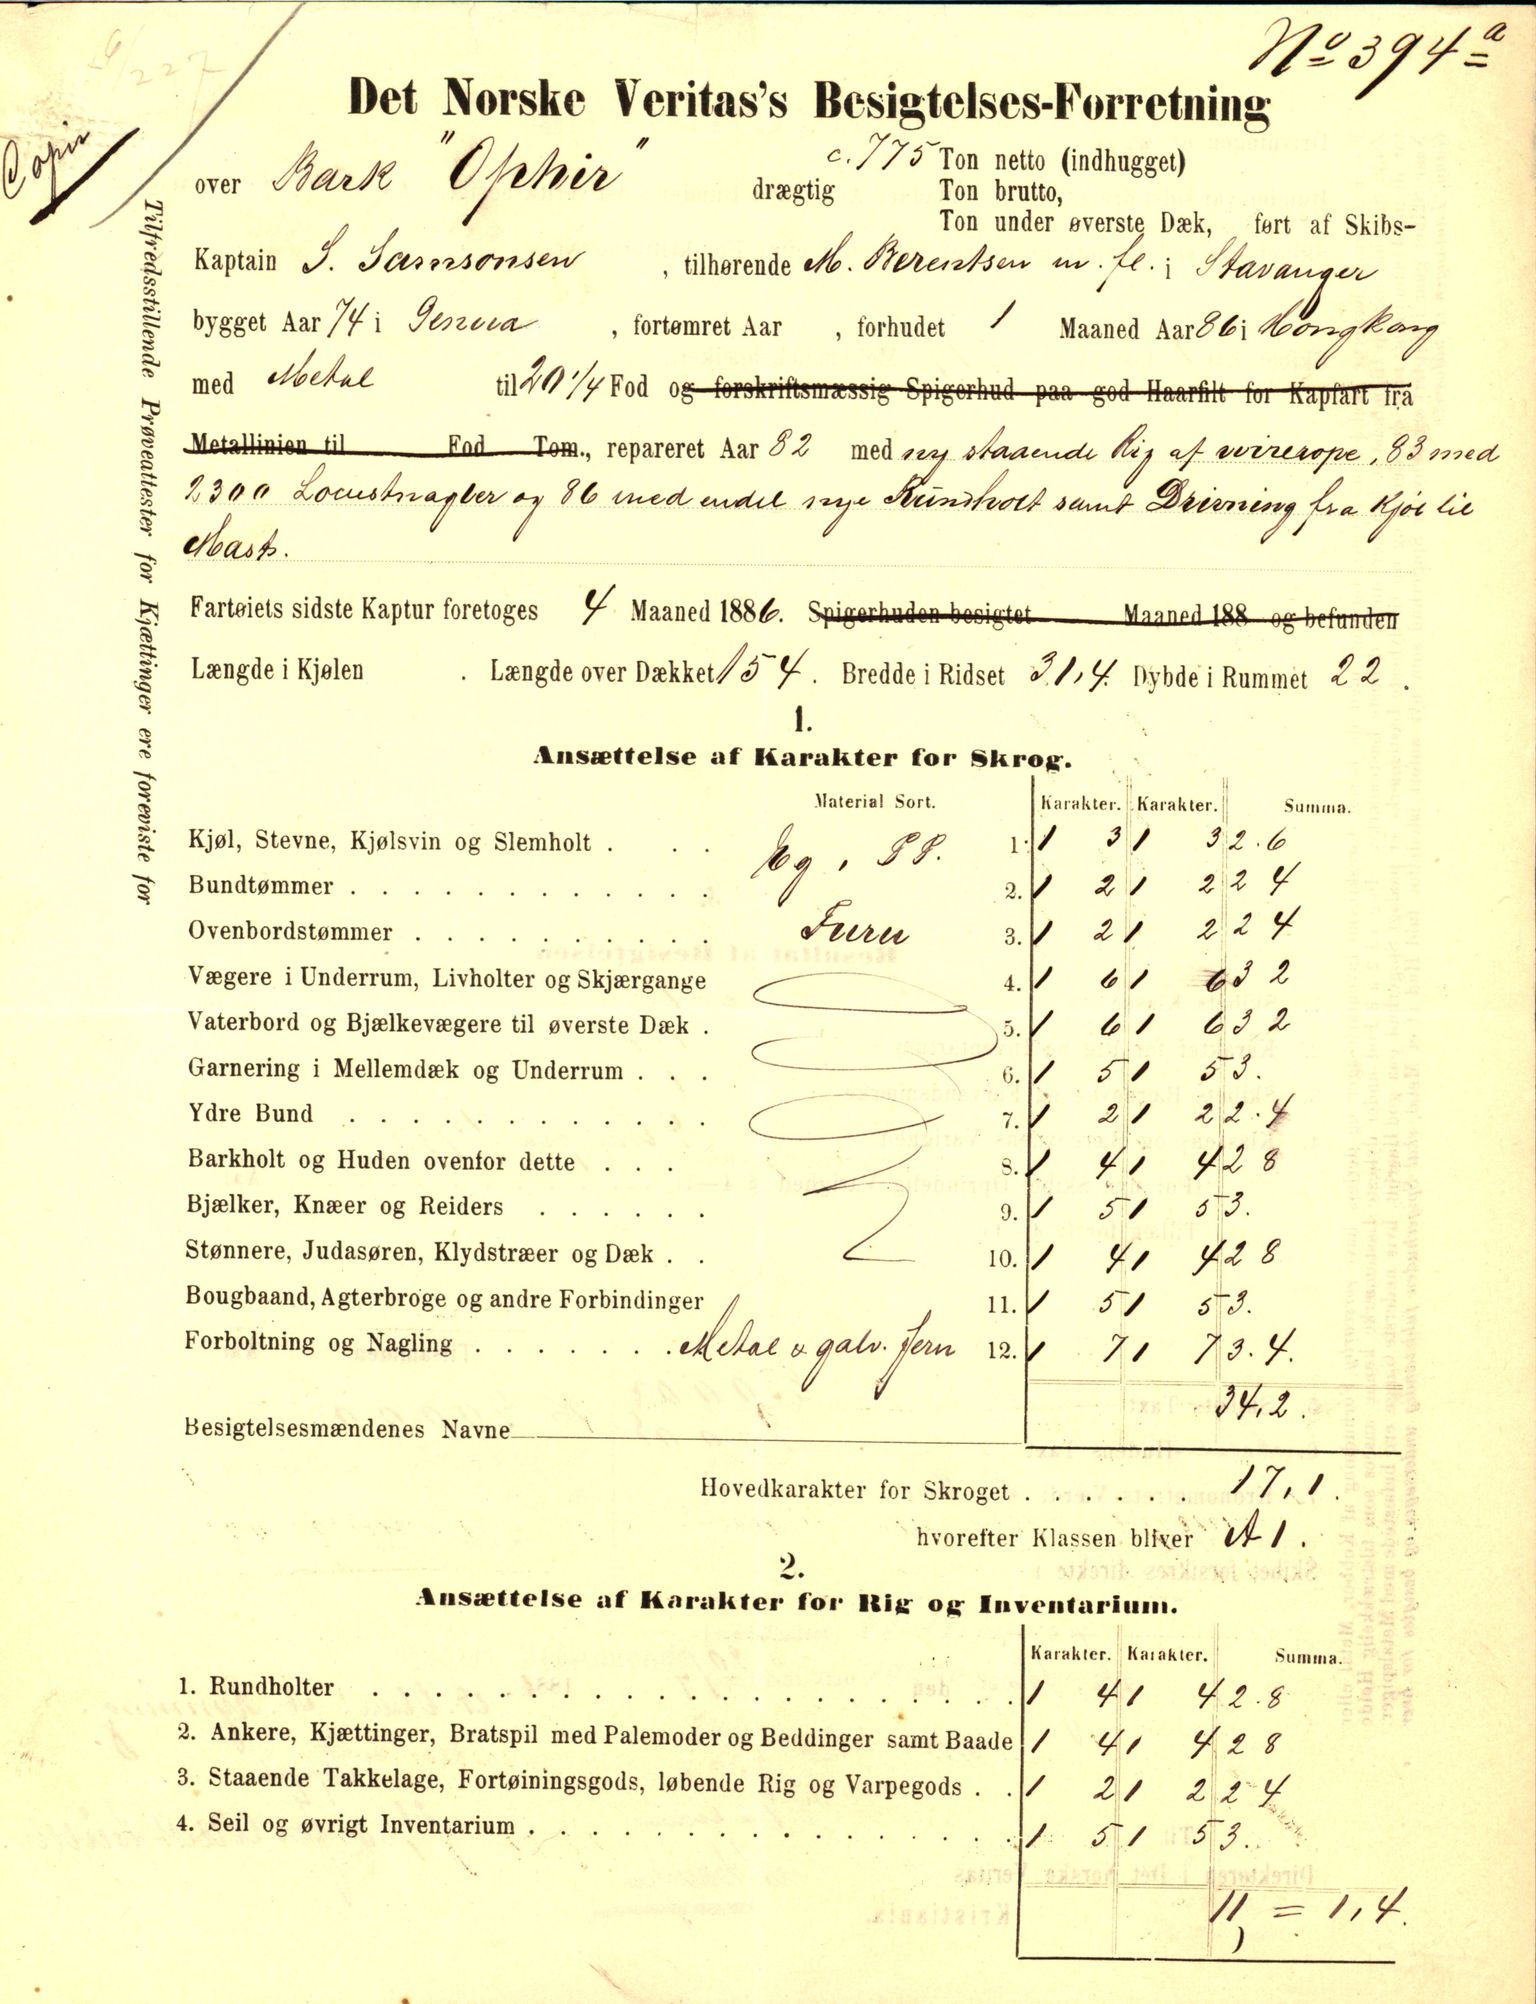 No 394 a
6/227
Copi
Det Norske Veritas's Besigtelses-Forretning
over Bark "Ophir" drægtig c. 775 Ton netto (indhugget)
Ton brutto,
Ton under øverste Dæk, ført af Skibs-
Kaptain S. Samsonsen, tilhørende M. Berentsen m. fl. i Stavanger
bygget Aar 74 i Genua, fortømret Aar , forhudet 1 Maaned Aar 86 i Hongkong
med Metal til 20 1/4 Fod og forskriftsmæssig Spigerhud paa god Haarfilt for Kapfart fra
Metallinien til Fod Tom., repareret Aar 82 med ny staaende Rig af wirerope, 83 med
2300 Locustnagler og 86 med endel nye Rundholt samt Drivning fra Kjøl til
Mast.
Fartøiets sidste Kaptur foretoges 4 Maaned 1886. Spigerhuden besigtet Maaned 188 og befunden
Længde i Kjølen . Længde over Dækket 154. Bredde i Ridset 31,4. Dybde i Rummet 22.
Tilfredsstillende Prøveattester for Kjættinger ere foreviste for
1.
Ansættelse af Karakter for Skrog.
Material Sort. Karakter. Karakter. Summa.
Kjøl, Stevne, Kjølsvin og Slemholt . . . Eg, PP. 1. 1 3 1 3 2.6
Bundtømmer . . . . . . . . . . . . 2. 1 2 1 2 2 4
Ovenbordstømmer . . . . . . . . . . Furu 3. 1 2 1 2 2 4
Vægere i Underrum, Livholter og Skjærgange 4. 1 6 1 6 3 2
Vaterbord og Bjælkevægere til øverste Dæk . 5. 1 6 1 6 3 2
Garnering i Mellemdæk og Underrum . . . 6. 1 5 1 5 3.
Ydre Bund . . . . . . . . . . . . 7. 1 2 1 2 2.4
Barkholt og Huden ovenfor dette . . . 8. 1 4 1 4 2 8
Bjælker, Knæer og Reiders . . . . . . 9. 1 5 1 5 3.
Stønnere, Judasøren, Klydstræer og Dæk . . 10. 1 4 1 4 2 8
Bougbaand, Agterbroge og andre Forbindinger 11. 1 5 1 5 3.
Forboltning og Nagling . . . . . . . Metal & galv. Jern 12. 1 7 1 7 3.4.
34,2.
Besigtelsesmændenes Navne
Hovedkarakter for Skroget . . . . . . 17,1.
hvorefter Klassen bliver A1.
2.
Ansættelse af Karakter for Rig og Inventarium.
Karakter. Karakter. Summa.
1. Rundholter . . . . . . . . . . . . . . . . 1 4 1 4 2.8
2. Ankere, Kjættinger, Bratspil med Palemoder og Beddinger samt Baade 1 4 1 4 2 8
3. Staaende Takkelage, Fortøiningsgods, løbende Rig og Varpegods . . 1 2 1 2 2 4
4. Seil og øvrigt Inventarium . . . . . . . . . . . . 1 5 1 5 3.
11 = 1,4.